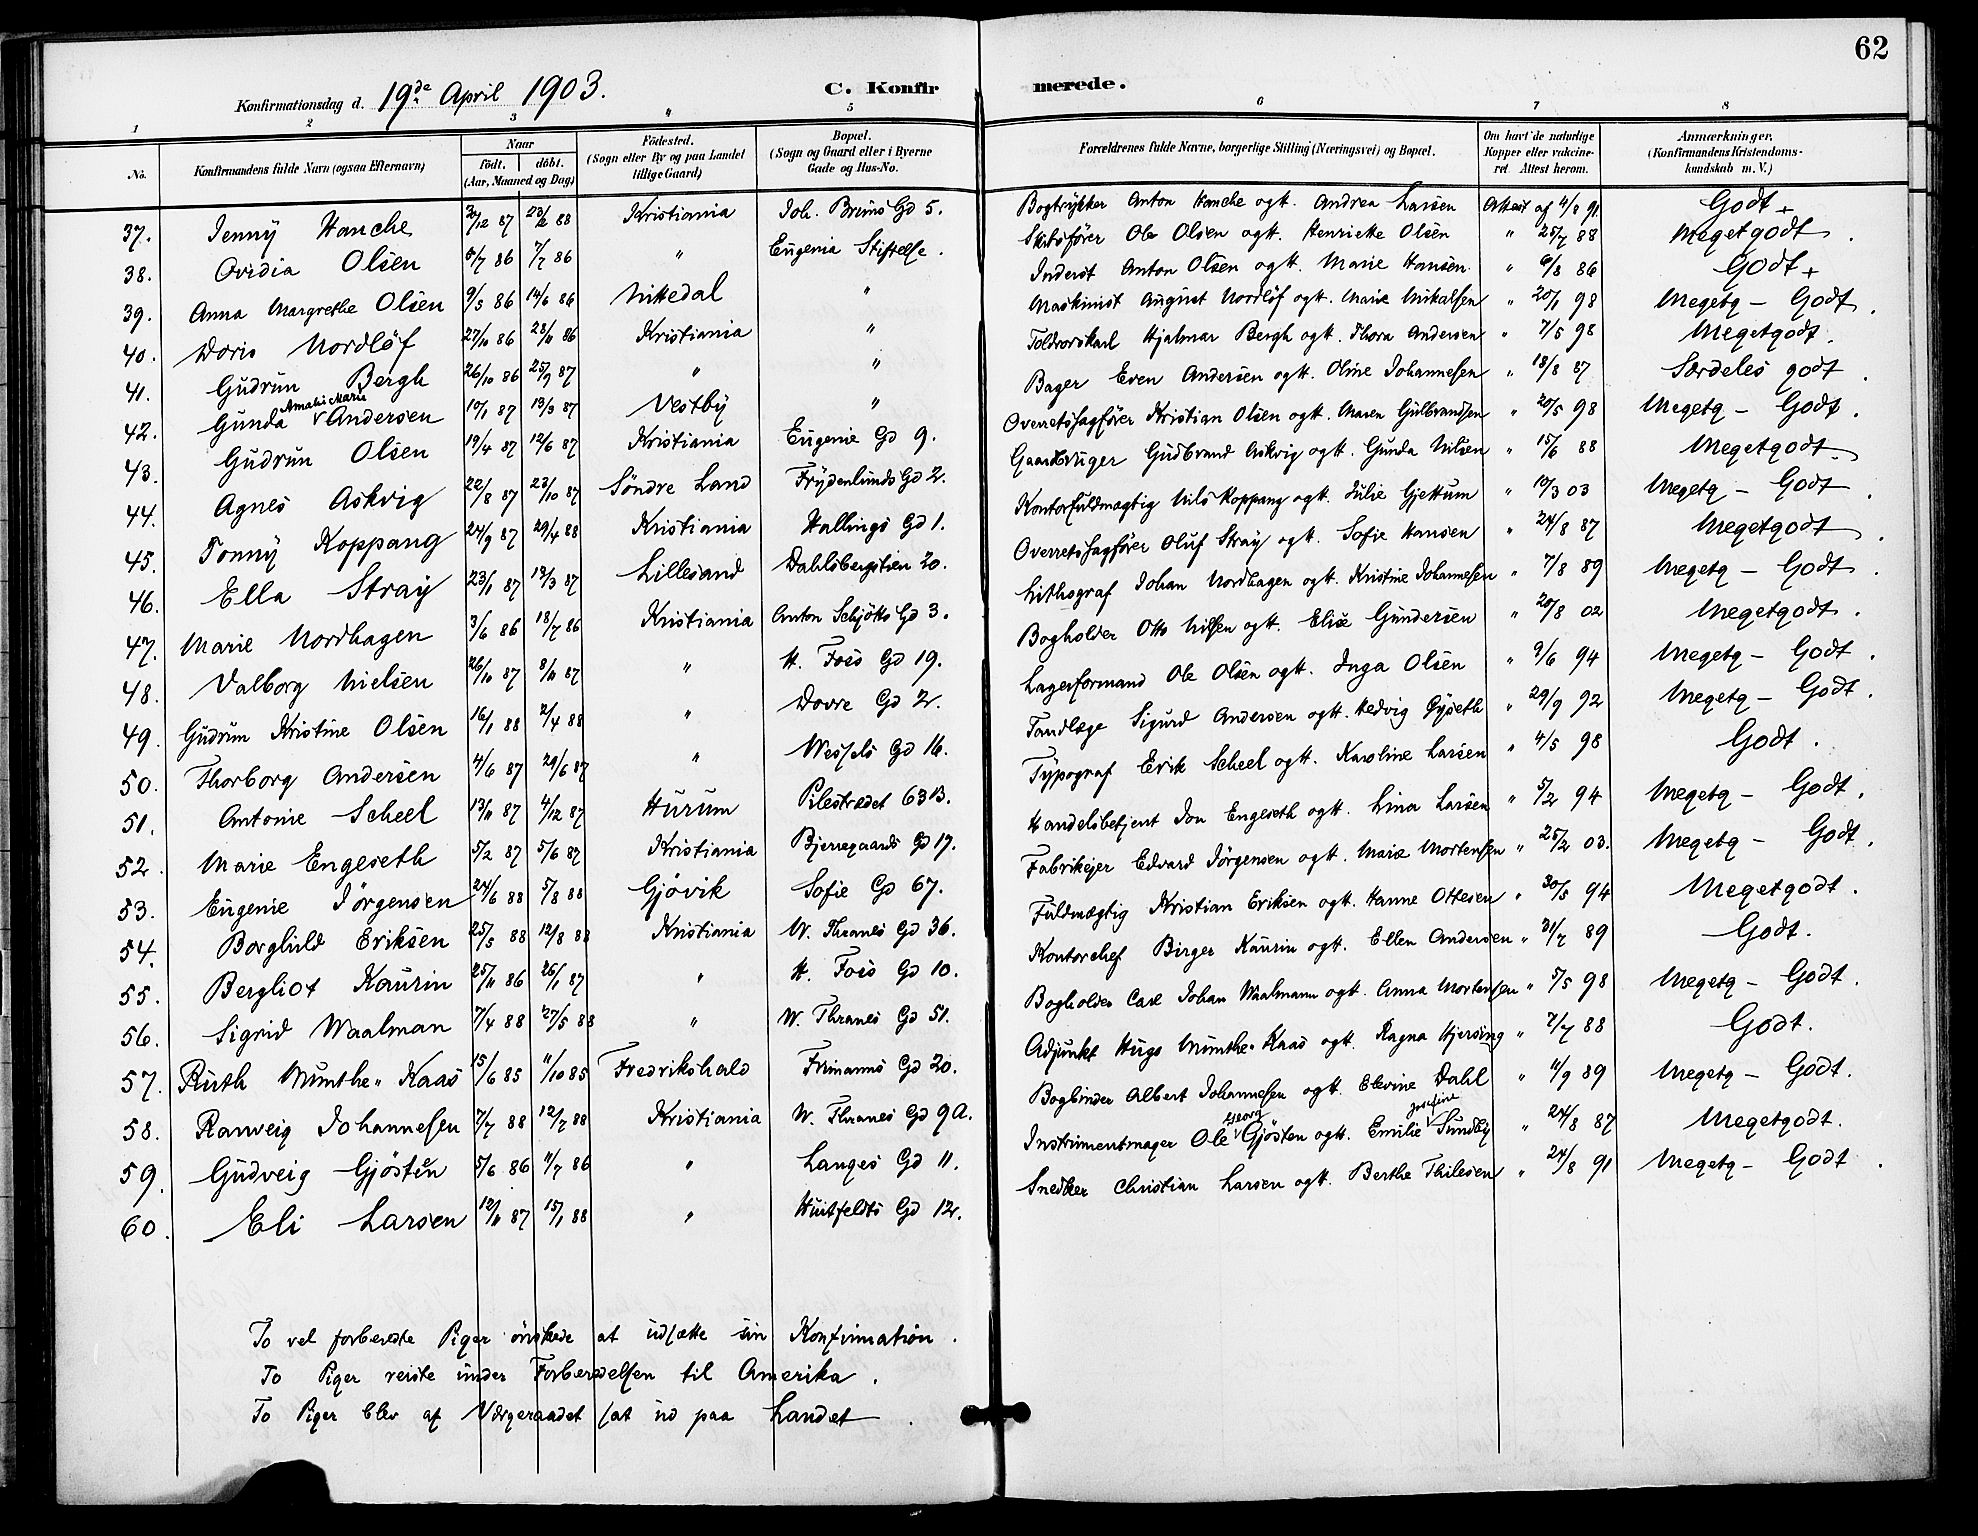 62
Konfirmationsdag d. 19de April 1903.
C. Konfirmerede.
1 2 3 " 5 6 7 8
No.
Konfirmandens fulde Navn (ogsaa Efternavn)
Naar
født. døbt.
(Aar, Maaned og Dag)
Fødested.
(Sogn eller By og paa Landet
tillige Gaard)
Bopæl.
(Sogn og Gaard eller i Byerne
Gade og Hus-No.
Forældrenes fulde Navne, borgerlige Stilling (Næringsvei) og Bopæl.
Om havt de naturlige
Kopper eller vakcine-
ret. Attest herom.
Anmærkninger,
(Konfirmandens Kristendoms-
kundskab m. V.)
37. Jenny Hanche /12 87 88 Kristiania Joh. Bruns Gd 5. Bogtrykker Anton Hanche ogtt. Andrea Larsen Attest af 4/8 91 Godt +
38. Ovidia Olsen 5/7 86 7/7 86 " Eugenia Stiftelse. Skibsfører Ole Olsen ogtt. Henriette Olsen " 25/7 88 Megetgodt.
39. Anna Margrethe Olsen 9/5 86 14/6 86 Nittedal " Inderst Anton Olsen ogtt. Marie Hansen " 6/8 86 Godt +
40. Doris Nordløf 27/10 86 28/11 86 Kristiania " Maskinist August Nordløf ogtt. Marie Mikalsen " 20/1 98 Megetg - Godt.
41. Gudrun Bergh 26/10 86 25/9 87 " " Toldrorskarl Hjalmar Bergh ogtt. Thora Andersen " 7/5 98 Megetgodt.
42. Gunda Amalie Marie Andersen 10/1 87 13/3 87 Vestby " Bager Even Andersen ogtt. Oline Johannesen " 18/8 87 Særdeles godt.
43. Gudrun Olsen 19/4 87 12/6 87 Kristiania Eugenie Gd 9. Overretssagfører Kristian Olsen ogtt. Maren Gulbrandsen " 20/5 98 Megetg - Godt.
44. Agnes Askvig 22/8 87 23/10 87 Søndre Land Frydenlunds Gd 2. Gaardbruger Gudbrand Askvig ogtt. Gunda Nilsen " 15/6 88 Megetgodt.
45. Tonny Koppang 24/9 87 29/4 88 Kristiania Hallings Gd 1. Kontorfuldmægtig Nils Koppang ogtt. Julie Gjettum " 13/3 03 Megetg - Godt.
46. Ella Stray 23/1 87 13/3 87 Lillesand Dahlsbergstien 20. Overretssagfører Oluf Stray ogtt. Sofie Hansen " 24/8 87 Megetgodt.
47. Marie Nordhagen 3/6 86 18/7 86 Kristiania Anton Schjøtts Gd 3. Lithograf Johan Nordhagen ogtt. Kristine Johannesen " 7/8 89 Megetg - Godt.
48. Valborg Nielsen 26/10 87 8/11 87 " H. Foss Gd 19. Bogholder Otto Nilsen ogtt. Elise Gundersen " 20/8 02 Megetgodt.
49. Gudrun Kristine Olsen 16/1 88 2/4 88 " Dovre Gd 2. Lagerformand Ole Olsen ogtt. Inga Olsen " 9/6 94 Megetg - Godt.
50. Thorborg Andersen 4/6 87 29/6 87 " Wessels Gd 16. Tandlæge Sigurd Andersen ogtt. Hedvig " 29/9 92 Megetg - Godt.
51. Antonie Scheel 13/11 87 4/12 87 Hurum Pilestrædet 63 B. Typograf Erik Scheel ogtt. Karoline Larsen " 4/5 98 Godt.
52. Marie Engeseth 5/2 87 5/6 87 Kristiania Bjerregaards Gd 17. Handelsbetjent Jon Engeseth ogtt. Lina Larsen " 5/2 94 Megetg - Godt.
53. Eugenie Jørgensen 24/6 88 5/8 88 Gjøvik Sofie Gd 67. Fabrikejer Edvard Jørgensen ogtt. Marie Mortensen " 25/2 03. Megetg - Godt.
54. Borghild Eriksen 25/5 88 12/8 88 Kristiania W. Thranes Gd 36. Fuldmægtig Kristian Eriksen ogtt. Hanne Ottesen " 30/5 94 Megetgodt.
55. Bergliot Kaurin 25/11 86 26/1 87 " H. Foss Gd 10. Kontorchef Birger Kaurin ogtt. Ellen Andersen " 31/7 89 Godt.
56. Sigrid Waalman 7/4 88 27/5 88 " W. Thranes Gd 51. Bogholder Carl Johan Waalmann ogtt. Anna Mortensen " 5/5 98 Megetg - Godt.
57. Ruth Munthe-Kaas 15/6 85 11/10 85 Fredrikshald Frimanns Gd 20. Adjunkt Hugo Munthe-Kaas ogtt. Ragna Hjersing " 7/7 88 Godt.
58. Ranveig Johannesen 7/7 88 12/7 88 Kristiania W. Thranes Gd 9 A. Bogbinder Albert Johannesen ogtt. Elevine Dahl " 11/9 89 Megetg - Godt.
59. Gudveig Gjøsten 5/6 86 11/7 86 " Langes Gd 11. Instrumentmager Ole Georg Gjøsten ogtt. Emilie Josefine Sundby " 24/8 87 Megetgodt.
60. Eli Larsen 12/11 87 15/1 88 " Huitfeldts Gd 12. Snedker Christian Larsen ogtt. Berthe Thilesen " 24/8 91 Megetg - Godt.
To vel forberedte Piger ønskede at udsætte sin Konfirmation.
To Piger reiste under Forberedelsen til Amerika.
To Piger blev af Værgeraadet sat ud paa Landet.